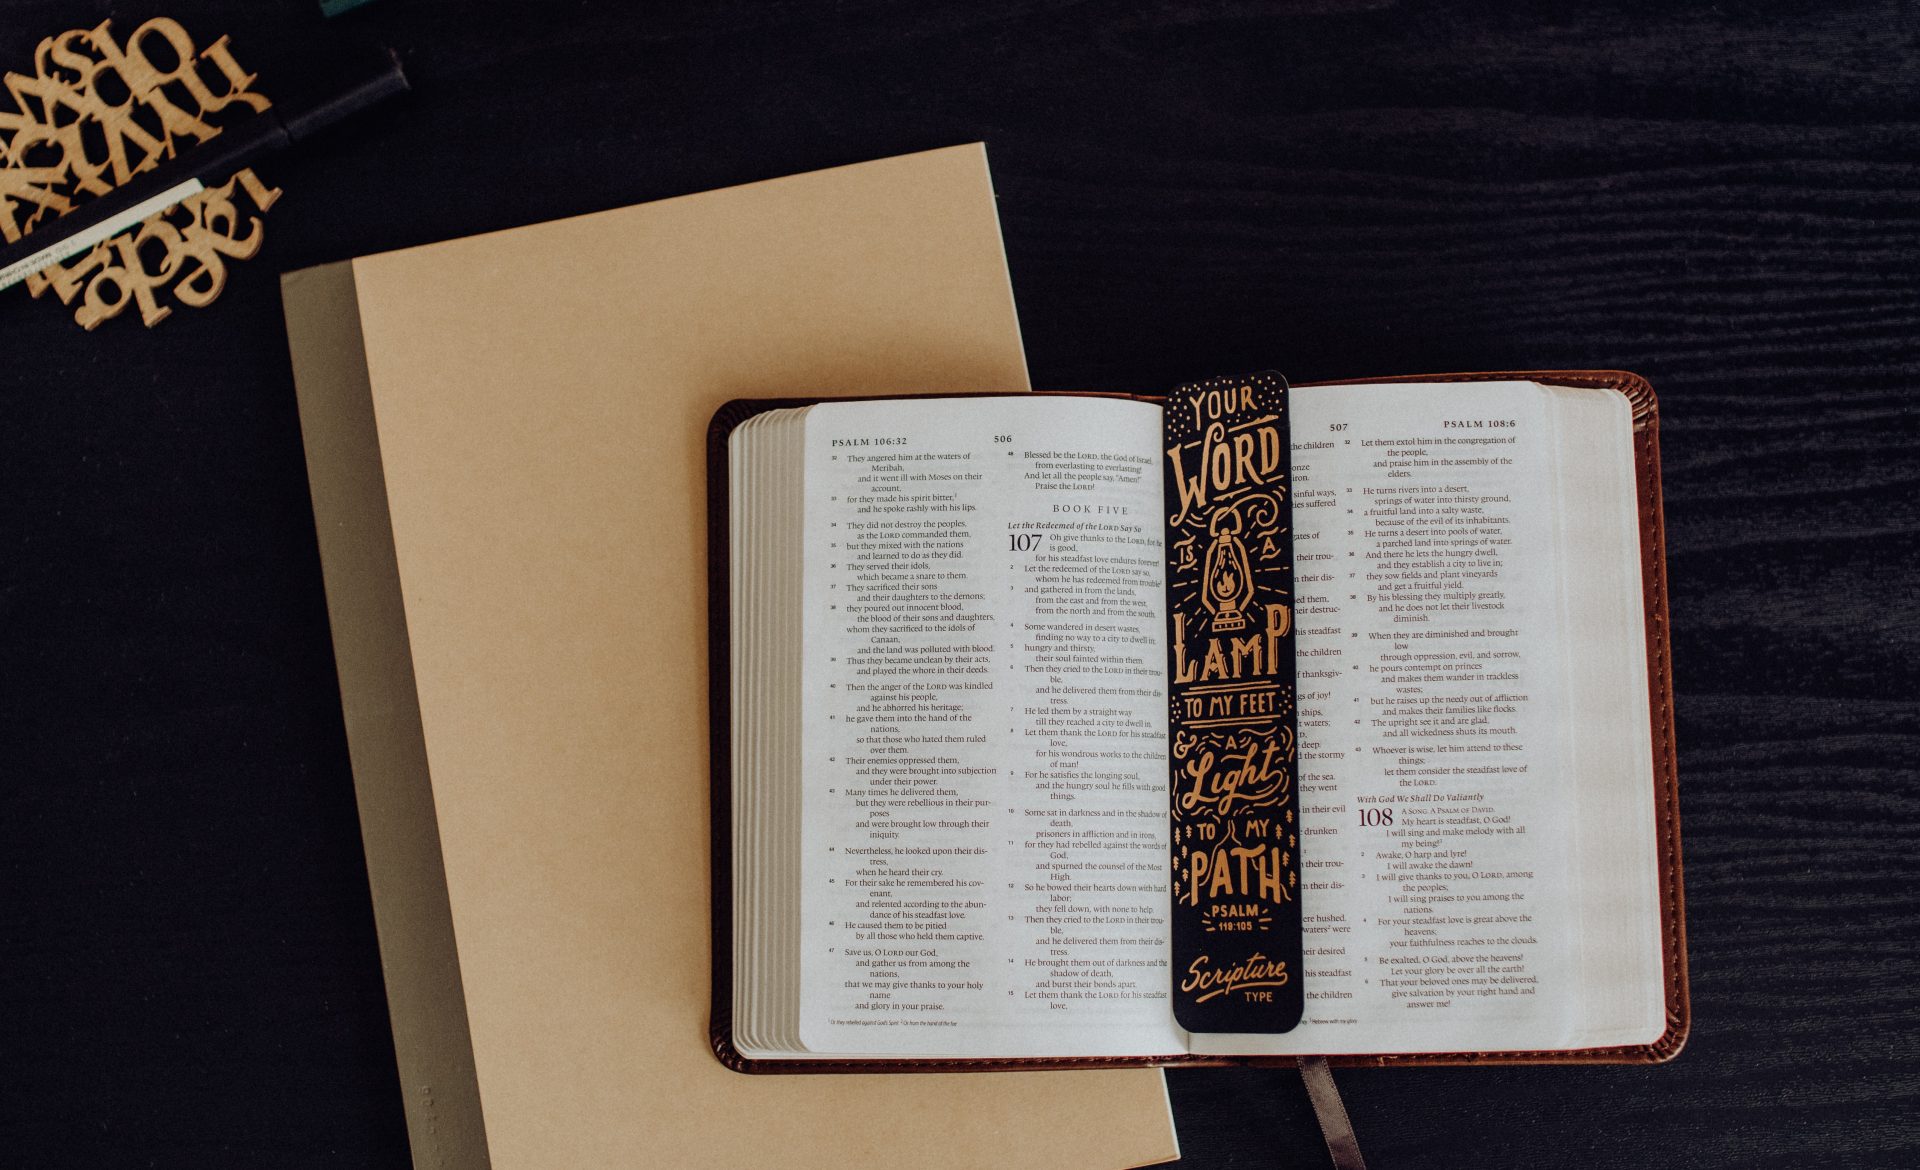 PSALM 106:32
506
32 They angered him at the waters of
Meribah,
and it went ill with Moses on their
account,
33 for they made his spirit bitter,1
and he spoke rashly with his lips.
34 They did not destroy the peoples,
as the LORD commanded them,
35 but they mixed with the nations
and learned to do as they did.
36 They served their idols,
which became a snare to them.
37 They sacrificed their sons
and their daughters to the demons;
38 they poured out innocent blood,
the blood of their sons and daughters,
whom they sacrificed to the idols of
Canaan,
and the land was polluted with blood.
39 Thus they became unclean by their acts,
and played the whore in their deeds.
40 Then the anger of the LORD was kindled
against his people,
and he abhorred his heritage;
41 he gave them into the hand of the
nations,
so that those who hated them ruled
over them.
42 Their enemies oppressed them,
and they were brought into subjection
under their power.
43 Many times he delivered them,
but they were rebellious in their pur-
poses
and were brought low through their
iniquity.
44 Nevertheless, he looked upon their dis-
tress,
when he heard their cry.
45 For their sake he remembered his cov-
enant,
and relented according to the abun-
dance of his steadfast love.
46 He caused them to be pitied
by all those who held them captive.
47 Save us, O LORD our God,
and gather us from among the
nations,
that we may give thanks to your holy
name
and glory in your praise.
1 Or they rebelled against God's Spirit 2 Or from the hand of the foe
48 Blessed be the LORD, the God of Israel,
from everlasting to everlasting!
And let all the people say, "Amen!"
Praise the LORD!
BOOK FIVE
Let the Redeemed of the LORD Say So
107 Oh give thanks to the LORD, for he
is good,
for his steadfast love endures forever!
2 Let the redeemed of the LORD say so,
whom he has redeemed from trouble
3 and gathered in from the lands,
from the east and from the west,
from the north and from the south.
4 Some wandered in desert wastes,
finding no way to a city to dwell in;
5 hungry and thirsty,
their soul fainted within them.
6 Then they cried to the LORD in their trou-
ble,
and he delivered them from their dis-
tress.
7 He led them by a straight way
till they reached a city to dwell in.
8 Let them thank the LORD for his steadfast
love,
for his wondrous works to the children
of man!
9 For he satisfies the longing soul,
and the hungry soul he fills with good
things.
10 Some sat in darkness and in the shadow of
death,
prisoners in affliction and in irons,
11 for they had rebelled against the words of
God,
and spurned the counsel of the Most
High.
12 So he bowed their hearts down with hard
labor;
they fell down, with none to help.
13 Then they cried to the LORD in their trou-
ble,
and he delivered them from their dis-
tress.
14 He brought them out of darkness and the
shadow of death,
and burst their bonds apart.
15 Let them thank the LORD for his steadfast
love,
YOUR
WORD
IS A
LAMP
TO MY FEET
& A
Light
TO MY
PATH
PSALM
119:105
Scripture
TYPE
507
PSALM 108:6
the children
onze
iron.
sinful ways,
ies suffered
ates of
their trou-
n their dis-
ed them,
eir destruc-
his steadfast
the children
f thanksgiv-
gs of joy!
ships,
t waters;
deep.
the stormy
of the sea.
they went
in their evil
drunken
their trou-
m their dis-
ere hushed.
waters2 were
eir desired
his steadfast
the children
32 Let them extol him in the congregation of
the people,
and praise him in the assembly of the
elders.
33 He turns rivers into a desert,
springs of water into thirsty ground,
34 a fruitful land into a salty waste,
because of the evil of its inhabitants.
35 He turns a desert into pools of water,
a parched land into springs of water.
36 And there he lets the hungry dwell,
and they establish a city to live in;
37 they sow fields and plant vineyards
and get a fruitful yield.
38 By his blessing they multiply greatly,
and he does not let their livestock
diminish.
39 When they are diminished and brought
low
through oppression, evil, and sorrow,
40 he pours contempt on princes
and makes them wander in trackless
wastes;
41 but he raises up the needy out of affliction
and makes their families like flocks.
42 The upright see it and are glad,
and all wickedness shuts its mouth.
43 Whoever is wise, let him attend to these
things;
let them consider the steadfast love of
the LORD.
With God We Shall Do Valiantly
108 A SONG. A PSALM OF DAVID.
My heart is steadfast, O God!
I will sing and make melody with all
my being!3
2 Awake, O harp and lyre!
I will awake the dawn!
3 I will give thanks to you, O LORD, among
the peoples;
I will sing praises to you among the
nations.
4 For your steadfast love is great above the
heavens;
your faithfulness reaches to the clouds.
5 Be exalted, O God, above the heavens!
Let your glory be over all the earth!
6 That your beloved ones may be delivered,
give salvation by your right hand and
answer me!
3 Hebrew with my glory